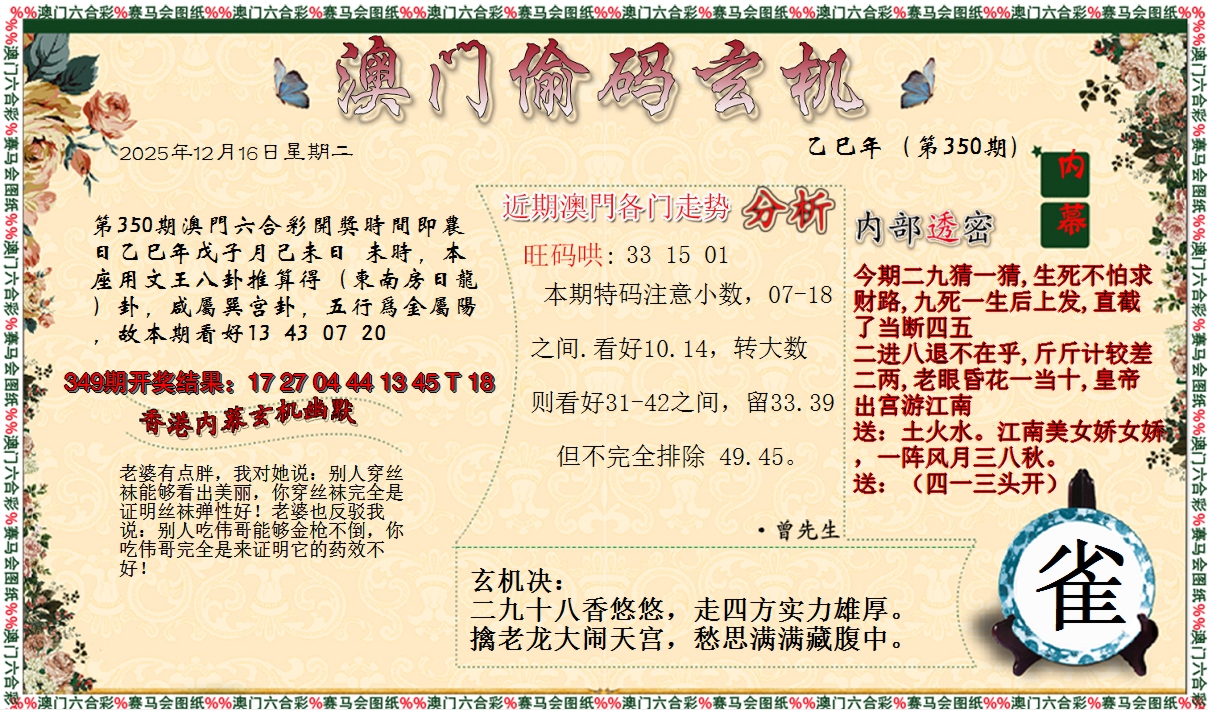 %%澳门六合彩%赛马会图纸%%澳门六合彩%赛马会图纸%%澳门六合彩%赛马会图纸%%澳门六合彩%赛马会图纸%%澳门六合彩%赛马会图纸%%澳门六合彩%赛马会图纸%%
澳门偷码玄机
2025年12月16日星期二
乙巳年（第350期）
内幕
第350期澳門六合彩開獎時間即農
日乙巳年戊子月己未日 未時，本
座用文王八卦推算得（東南房日龍
）卦，咸屬巽宫卦，五行爲金屬陽
，故本期看好13 43 07 20
349期开奖结果：17 27 04 44 13 45 T 18
香港内幕玄机幽默
老婆有点胖，我对她说：别人穿丝
袜能够看出美丽，你穿丝袜完全是
证明丝袜弹性好！老婆也反驳我
说：别人吃伟哥能够金枪不倒，你
吃伟哥完全是来证明它的药效不
好！
近期澳門各门走势 分析
旺码哄: 33 15 01
本期特码注意小数，07-18
之间.看好10.14，转大数
则看好31-42之间，留33.39
但不完全排除 49.45。
·曾先生
内部透密
今期二九猜一猜,生死不怕求
财路,九死一生后上发,直截
了当断四五
二进八退不在乎,斤斤计较差
二两,老眼昏花一当十,皇帝
出宫游江南
送：土火水。江南美女娇女娇
，一阵风月三八秋。
送：（四一三头开）
玄机决：
二九十八香悠悠，走四方实力雄厚。
擒老龙大闹天宫，愁思满满藏腹中。
雀
%%澳门六合彩%赛马会图纸%%澳门六合彩%赛马会图纸%%澳门六合彩%赛马会图纸%%澳门六合彩%赛马会图纸%%澳门六合彩%赛马会图纸%%澳门六合彩%赛马会图纸%%